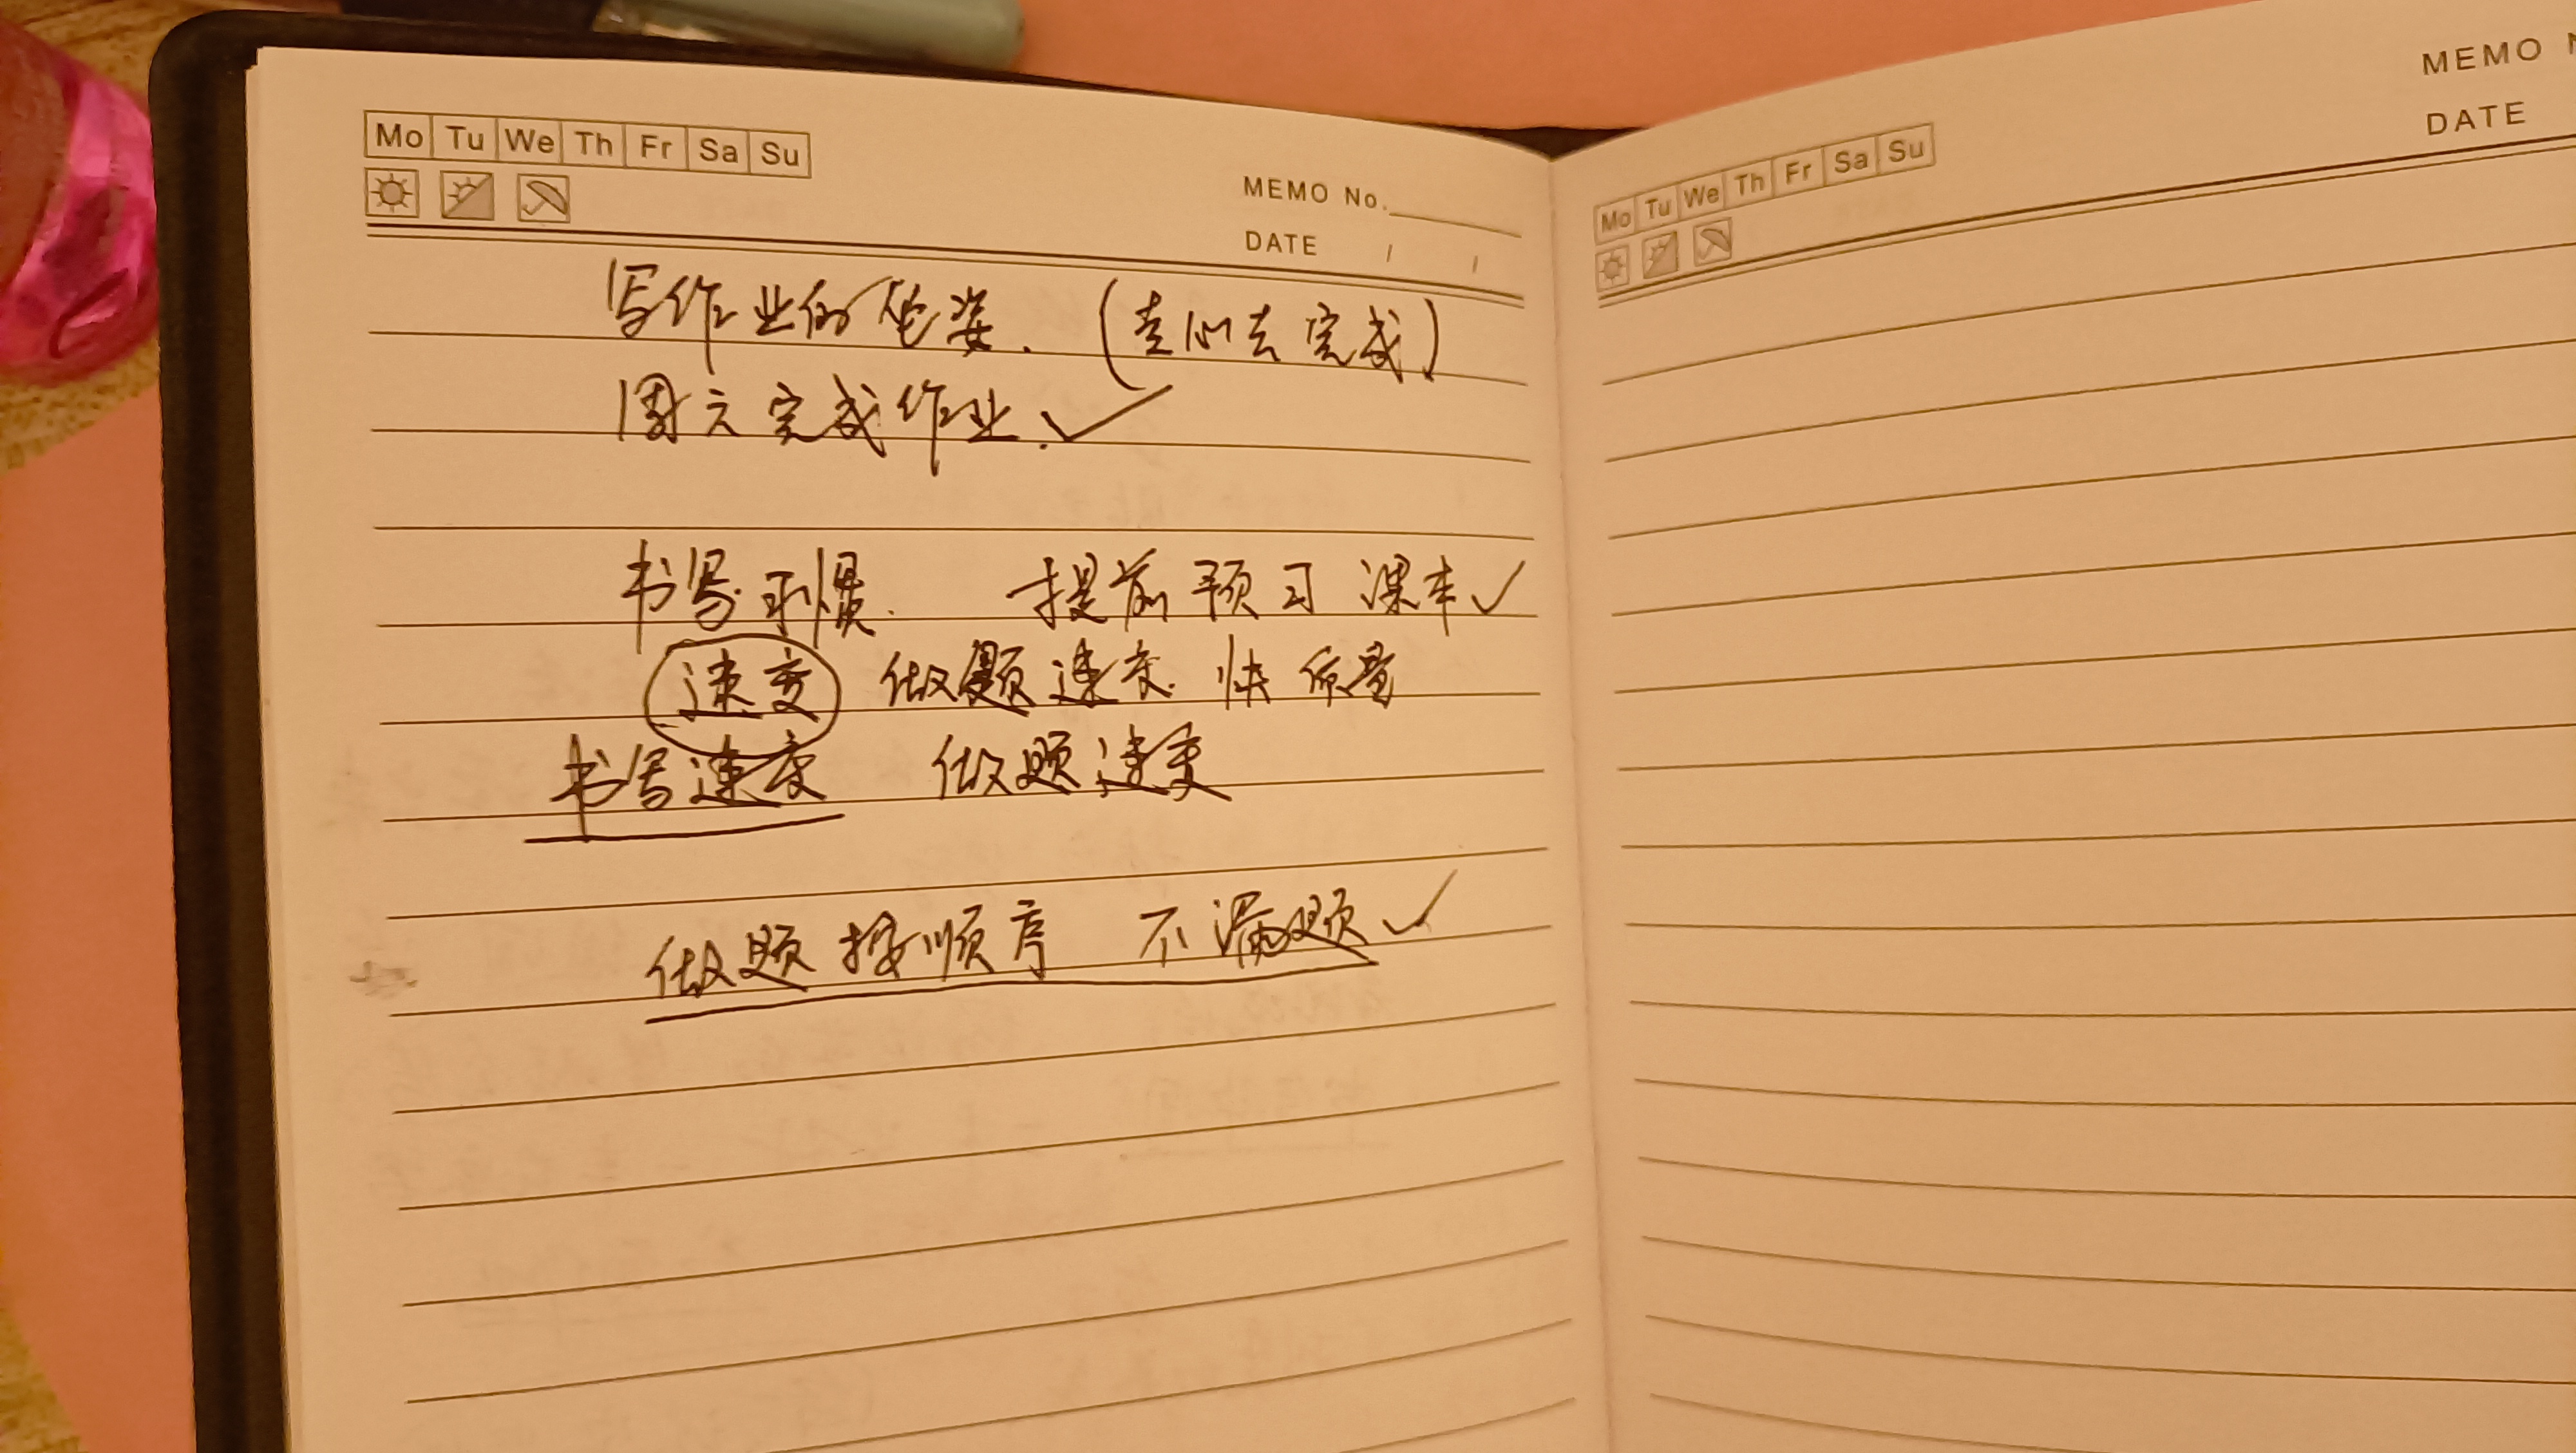 Mo Tu We Th Fr Sa Su
MEMO No.
DATE / /
写作业的坐姿. (去完成)
周六完成作业. ✓
书写习惯. 提前预习课本 ✓
速度 做题速度 快 质量
书写速度 做题速度
做题按顺序 不漏题 ✓
MEMO N
DATE
Mo Tu We Th Fr Sa Su